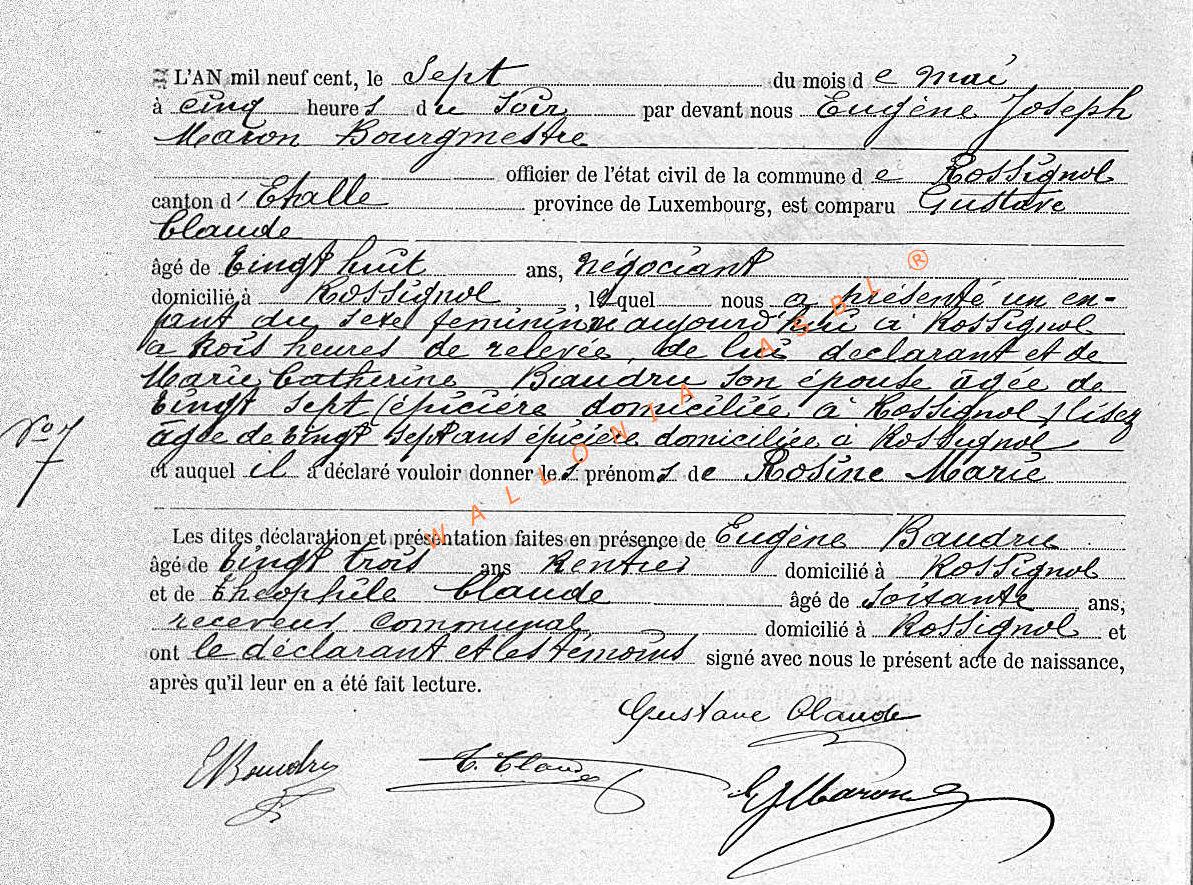 L'AN mil neuf cent, le sept du mois de mai
à cinq heures du soir par devant nous Eugène Joseph
Maron Bourgmestre
officier de l'état civil de la commune de Rossignol
canton d'Etalle province de Luxembourg, est comparu Gustave
Claude
âgé de vingt huit ans, négociant
domicilié à Rossignol, lequel nous a présenté un en-
fant du sexe feminin né aujourd'hui à Rossignol
a trois heures de relevée, de lui déclarant et de
Marie Catherine Baudru son épouse âgée de
vingt sept épicière domiciliée à Rossignol lisez
âgée de vingt sept ans épicière domiciliée à Rossignol
N° 7
et auquel il a déclaré vouloir donner les prénoms de Rosine Marie
Les dites déclaration et présentation faites en présence de Eugène Baudru
âgé de vingt trois ans Rentier domicilié à Rossignol
et de Théophile Claude âgé de soixante ans,
receveur communal domicilié à Rossignol et
ont le déclarant et les témoins signé avec nous le présent acte de naissance,
après qu'il leur en a été fait lecture.
Gustave Claude
E Baudru T. Claude
E J Maron
WALLONIA ASBL ®